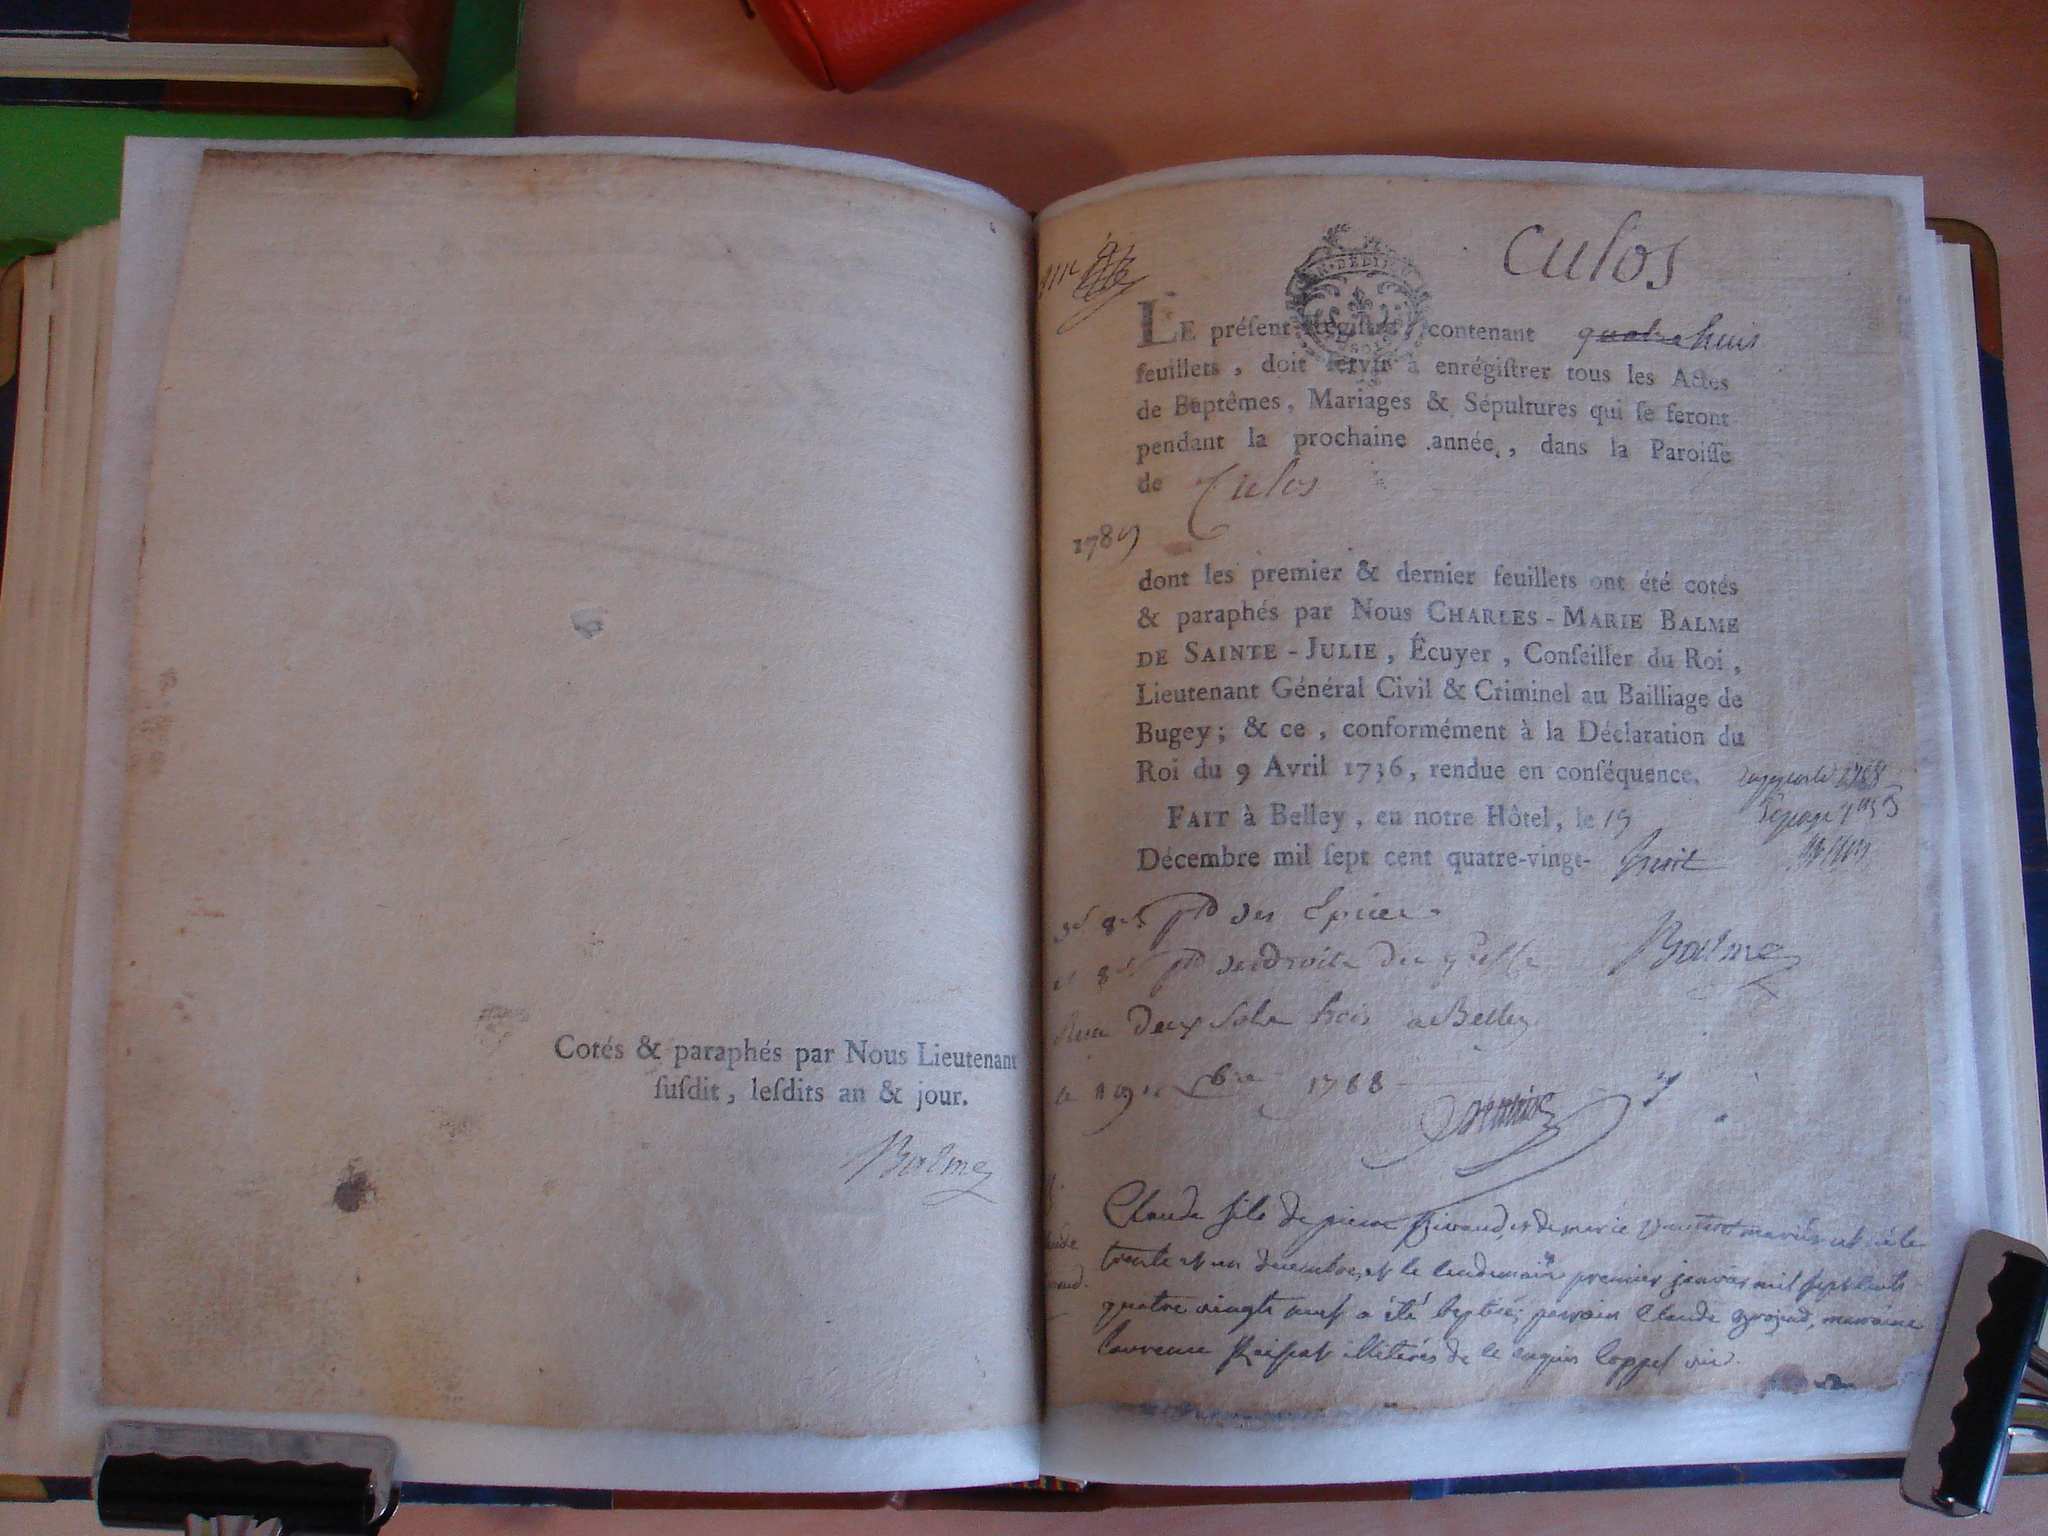 Cotés & paraphés par Nous Lieutenant
ſuſdit, leſdits an & jour.
Balme
culos
LE préſent Regiſtre, contenant quatre huit
feuillets, doit ſervir à enrégiſtrer tous les Actes
de Baptêmes, Mariages & Sépultures qui ſe feront
pendant la prochaine année, dans la Paroiſſe
de Culos
1789
dont les premier & dernier feuillets ont été cotés
& paraphés par Nous CHARLES-MARIE BALME
DE SAINTE-JULIE, Écuyer, Conſeiller du Roi,
Lieutenant Général Civil & Criminel au Bailliage de
Bugey; & ce, conformément à la Déclaration du
Roi du 9 Avril 1736, rendue en conſéquence.
FAIT à Belley, en notre Hôtel, le 19
Décembre mil ſept cent quatre-vingt- huit
des Epices
Balme
Reçu deux sols huit a Belley
le 19 1788
Claude fils de pierre et de marie mariés est né le
trente et un décembre, et le lendemain premier janvier mil sept cents
quatre vingts neuf a été baptisé; parrain Claude marraine
laurence illiterés de ce enquis